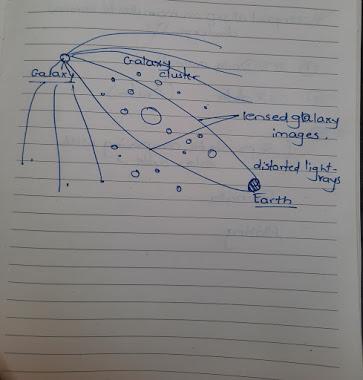 Galaxy
cluster
Galaxy
lensed galaxy
images.
distorted light-
rays
Earth